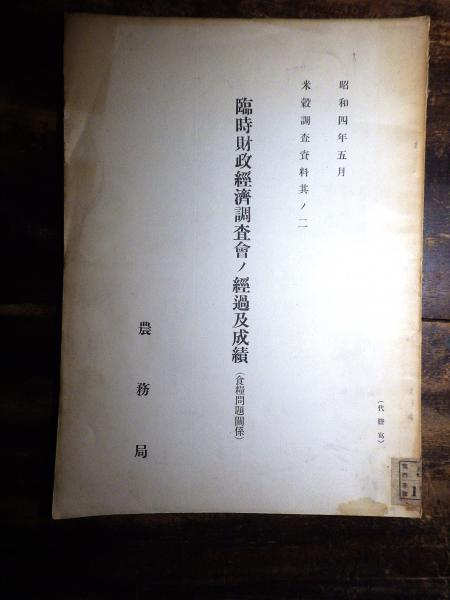 昭和四年五月
米穀調査資料其ノ二
臨時財政經濟調査會ノ經過及成績(食糧問題關係)
農務局
(代謄寫)
1